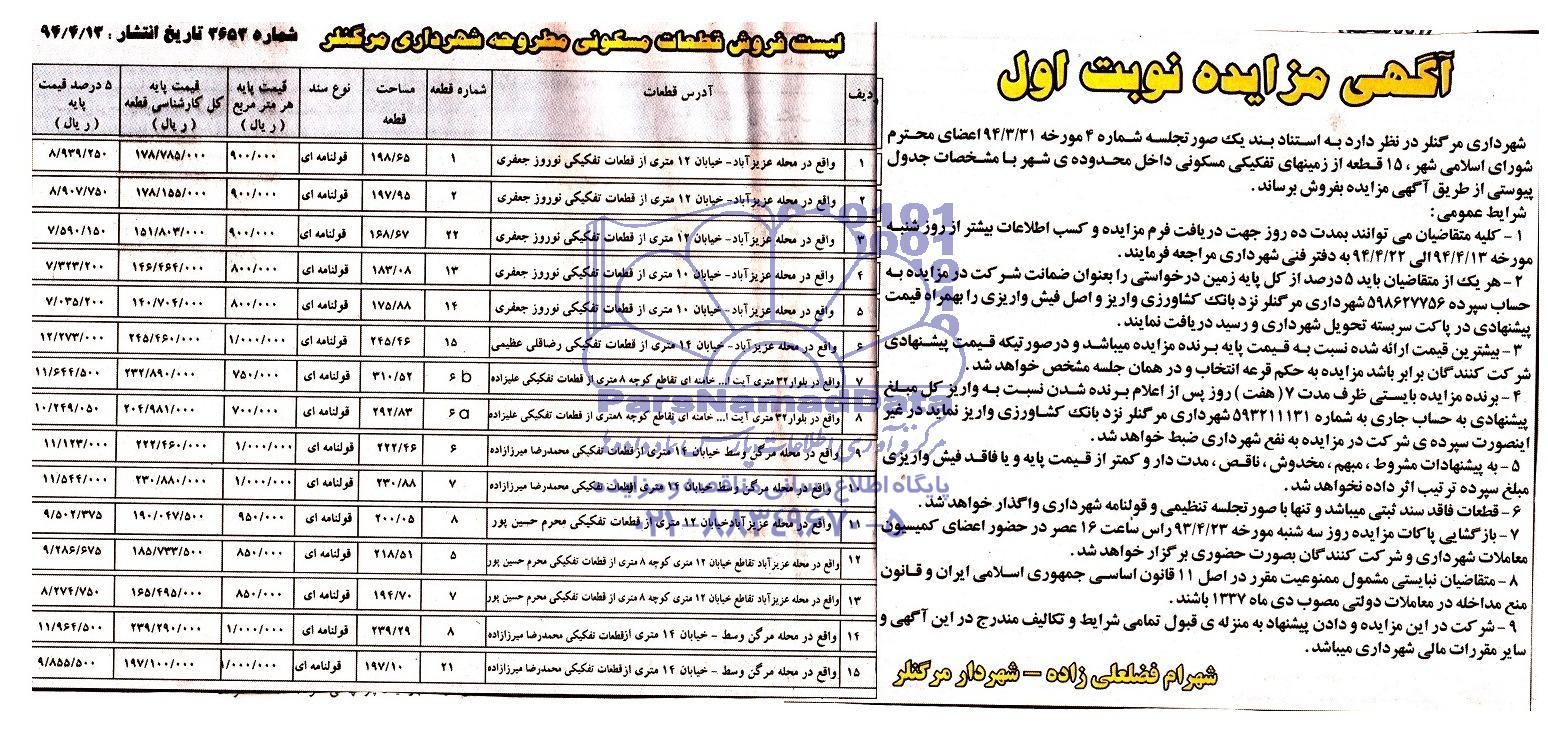 آگهی مزایده نوبت اول
شهرداری مرگنلر در نظر دارد به استناد بند یک صورتجلسه شماره ۴ مورخه ۹۴/۳/۳۱ اعضای محترم
شورای اسلامی شهر ، ۱۵ قطعه از زمینهای تفکیکی مسکونی داخل محدوده ی شهر با مشخصات جدول
پیوستی از طریق آگهی مزایده بفروش برساند .
شرایط عمومی :
۱ - کلیه متقاضیان می توانند بمدت ده روز جهت دریافت فرم مزایده و کسب اطلاعات بیشتر از روز شنبه
مورخه ۹۴/۴/۱۳ الی ۹۴/۴/۲۲ به دفتر فنی شهرداری مراجعه فرمایند .
۲ - هر یک از متقاضیان باید ۵ درصد از کل پایه زمین درخواستی را بعنوان ضمانت شرکت در مزایده به
حساب سپرده ۵۹۸۶۲۷۷۵۶ شهرداری مرگنلر نزد بانک کشاورزی واریز و اصل فیش واریزی را بهمراه قیمت
پیشنهادی در پاکت سربسته تحویل شهرداری و رسید دریافت نمایند .
۳ - بیشترین قیمت ارائه شده نسبت به قیمت پایه برنده مزایده میباشد و درصورتیکه قیمت پیشنهادی
شرکت کنندگان برابر باشد مزایده به حکم قرعه انتخاب و در همان جلسه مشخص خواهد شد .
۴ - برنده مزایده بایستی ظرف مدت ۷ ( هفت ) روز پس از اعلام برنده شدن نسبت به واریز کل مبلغ
پیشنهادی به حساب جاری به شماره ۵۹۳۲۱۱۱۳۱ شهرداری مرگنلر نزد بانک کشاورزی واریز نماید در غیر
اینصورت سپرده ی شرکت در مزایده به نفع شهرداری ضبط خواهد شد .
۵ - به پیشنهادات مشروط ، مبهم ، مخدوش ، ناقص ، مدت دار و کمتر از قیمت پایه و یا فاقد فیش واریزی
مبلغ سپرده ترتیب اثر داده نخواهد شد .
۶ - قطعات فاقد سند ثبتی میباشد و تنها با صورتجلسه تنظیمی و قولنامه شهرداری واگذار خواهد شد .
۷ - بازگشایی پاکات مزایده روز سه شنبه مورخه ۹۳/۴/۲۳ راس ساعت ۱۶ عصر در حضور اعضای کمیسیون
معاملات شهرداری و شرکت کنندگان بصورت حضوری برگزار خواهد شد .
۸ - متقاضیان نبایستی مشمول ممنوعیت مقرر در اصل ۱۱ قانون اساسی جمهوری اسلامی ایران و قانون
منع مداخله در معاملات دولتی مصوب دی ماه ۱۳۳۷ باشند .
۹ - شرکت در این مزایده و دادن پیشنهاد به منزله ی قبول تمامی شرایط و تکالیف مندرج در این آگهی و
سایر مقررات مالی شهرداری میباشد .
شهرام فضلعلی زاده – شهردار مرگنلر
لیست فروش قطعات مسکونی مطروحه شهرداری مرگنلر شماره ۳۶۵۳ تاریخ انتشار : ۹۴/۴/۱۳
ردیف آدرس قطعات شماره قطعه مساحت قطعه نوع سند قیمت پایه هر متر مربع ( ریال ) قیمت پایه کل کارشناسی قطعه ( ریال ) ۵ درصد قیمت پایه ( ریال )
۱ واقع در محله عزیزآباد- خیابان ۱۲ متری از قطعات تفکیکی نوروز جعفری ۱ ۱۹۸/۶۵ قولنامه ای ۹۰۰/۰۰۰ ۱۷۸/۷۸۵/۰۰۰ ۸/۹۳۹/۲۵۰
۲ واقع در محله عزیزآباد- خیابان ۱۲ متری از قطعات تفکیکی نوروز جعفری ۲ ۱۹۷/۹۵ قولنامه ای ۹۰۰/۰۰۰ ۱۷۸/۱۵۵/۰۰۰ ۸/۹۰۷/۷۵۰
۳ واقع در محله عزیزآباد- خیابان ۱۲ متری از قطعات تفکیکی نوروز جعفری ۲۲ ۱۶۸/۶۷ قولنامه ای ۹۰۰/۰۰۰ ۱۵۱/۸۰۳/۰۰۰ ۷/۵۹۰/۱۵۰
۴ واقع در محله عزیزآباد- خیابان ۱۰ متری از قطعات تفکیکی نوروز جعفری ۱۳ ۱۸۳/۰۸ قولنامه ای ۸۰۰/۰۰۰ ۱۴۶/۴۶۴/۰۰۰ ۷/۳۲۳/۲۰۰
۵ واقع در محله عزیزآباد- خیابان ۱۰ متری از قطعات تفکیکی نوروز جعفری ۱۴ ۱۷۵/۸۸ قولنامه ای ۸۰۰/۰۰۰ ۱۴۰/۷۰۴/۰۰۰ ۷/۰۳۵/۲۰۰
۶ واقع در محله عزیزآباد- خیابان ۱۴ متری از قطعات تفکیکی رضاقلی عظیمی ۱۵ ۲۴۵/۴۶ قولنامه ای ۱/۰۰۰/۰۰۰ ۲۴۵/۴۶۰/۰۰۰ ۱۲/۲۷۳/۰۰۰
۷ واقع در بلوار ۳۲ متری آیت ا... خامنه ای تقاطع کوچه ۸ متری از قطعات تفکیکی علیزاده ۶b ۳۱۰/۵۲ قولنامه ای ۷۵۰/۰۰۰ ۲۳۲/۸۹۰/۰۰۰ ۱۱/۶۴۴/۵۰۰
۸ واقع در بلوار ۳۲ متری آیت ا... خامنه ای تقاطع کوچه ۸متری از قطعات تفکیکی علیزاده ۶a ۲۹۲/۸۳ قولنامه ای ۷۰۰/۰۰۰ ۲۰۴/۹۸۱/۰۰۰ ۱۰/۲۴۹/۰۵۰
۹ واقع در محله مرگن وسط خیابان ۱۴ متری از قطعات تفکیکی محمدرضا میرزازاده ۶ ۲۲۲/۴۶ قولنامه ای ۱/۰۰۰/۰۰۰ ۲۲۲/۴۶۰/۰۰۰ ۱۱/۱۲۳/۰۰۰
۱۰ واقع در محله مرگن وسط خیابان ۱۴ متری از قطعات تفکیکی محمدرضا میرزازاده ۷ ۲۳۰/۸۸ قولنامه ای ۱/۰۰۰/۰۰۰ ۲۳۰/۸۸۰/۰۰۰ ۱۱/۵۴۴/۰۰۰
۱۱ واقع در محله عزیزآباد خیابان ۱۲ متری از قطعات تفکیکی محرم حسین پور ۸ ۲۰۰/۰۵ قولنامه ای ۹۵۰/۰۰۰ ۱۹۰/۰۴۷/۵۰۰ ۹/۵۰۲/۳۷۵
۱۲ واقع در محله عزیزآباد تقاطع خیابان ۱۲ متری کوچه ۸ متری از قطعات تفکیکی محرم حسین پور ۵ ۲۱۸/۵۱ قولنامه ای ۸۵۰/۰۰۰ ۱۸۵/۷۳۳/۵۰۰ ۹/۲۸۶/۶۷۵
۱۳ واقع در محله عزیزآباد تقاطع خیابان ۱۲ متری کوچه ۸ متری از قطعات تفکیکی محرم حسین پور ۷ ۱۹۴/۷۰ قولنامه ای ۸۵۰/۰۰۰ ۱۶۵/۴۹۵/۰۰۰ ۸/۲۷۴/۷۵۰
۱۴ واقع در محله مرگن وسط - خیابان ۱۴ متری ازقطعات تفکیکی محمدرضا میرزازاده ۸ ۲۳۹/۲۹ قولنامه ای ۱/۰۰۰/۰۰۰ ۲۳۹/۲۹۰/۰۰۰ ۱۱/۹۶۴/۵۰۰
۱۵ واقع در محله مرگن وسط - خیابان ۱۴ متری ازقطعات تفکیکی محمدرضا میرزازاده ۲۱ ۱۹۷/۱۰ قولنامه ای ۱/۰۰۰/۰۰۰ ۱۹۷/۱۰۰/۰۰۰ ۹/۸۵۵/۵۰۰
ParsNamadData
مرکز فرآوری اطلاعات پارس نماد داده ها
پایگاه اطلاع رسانی مناقصه و مزایده
۰۲۱-۸۸۳۴۹۶۷۰-۵